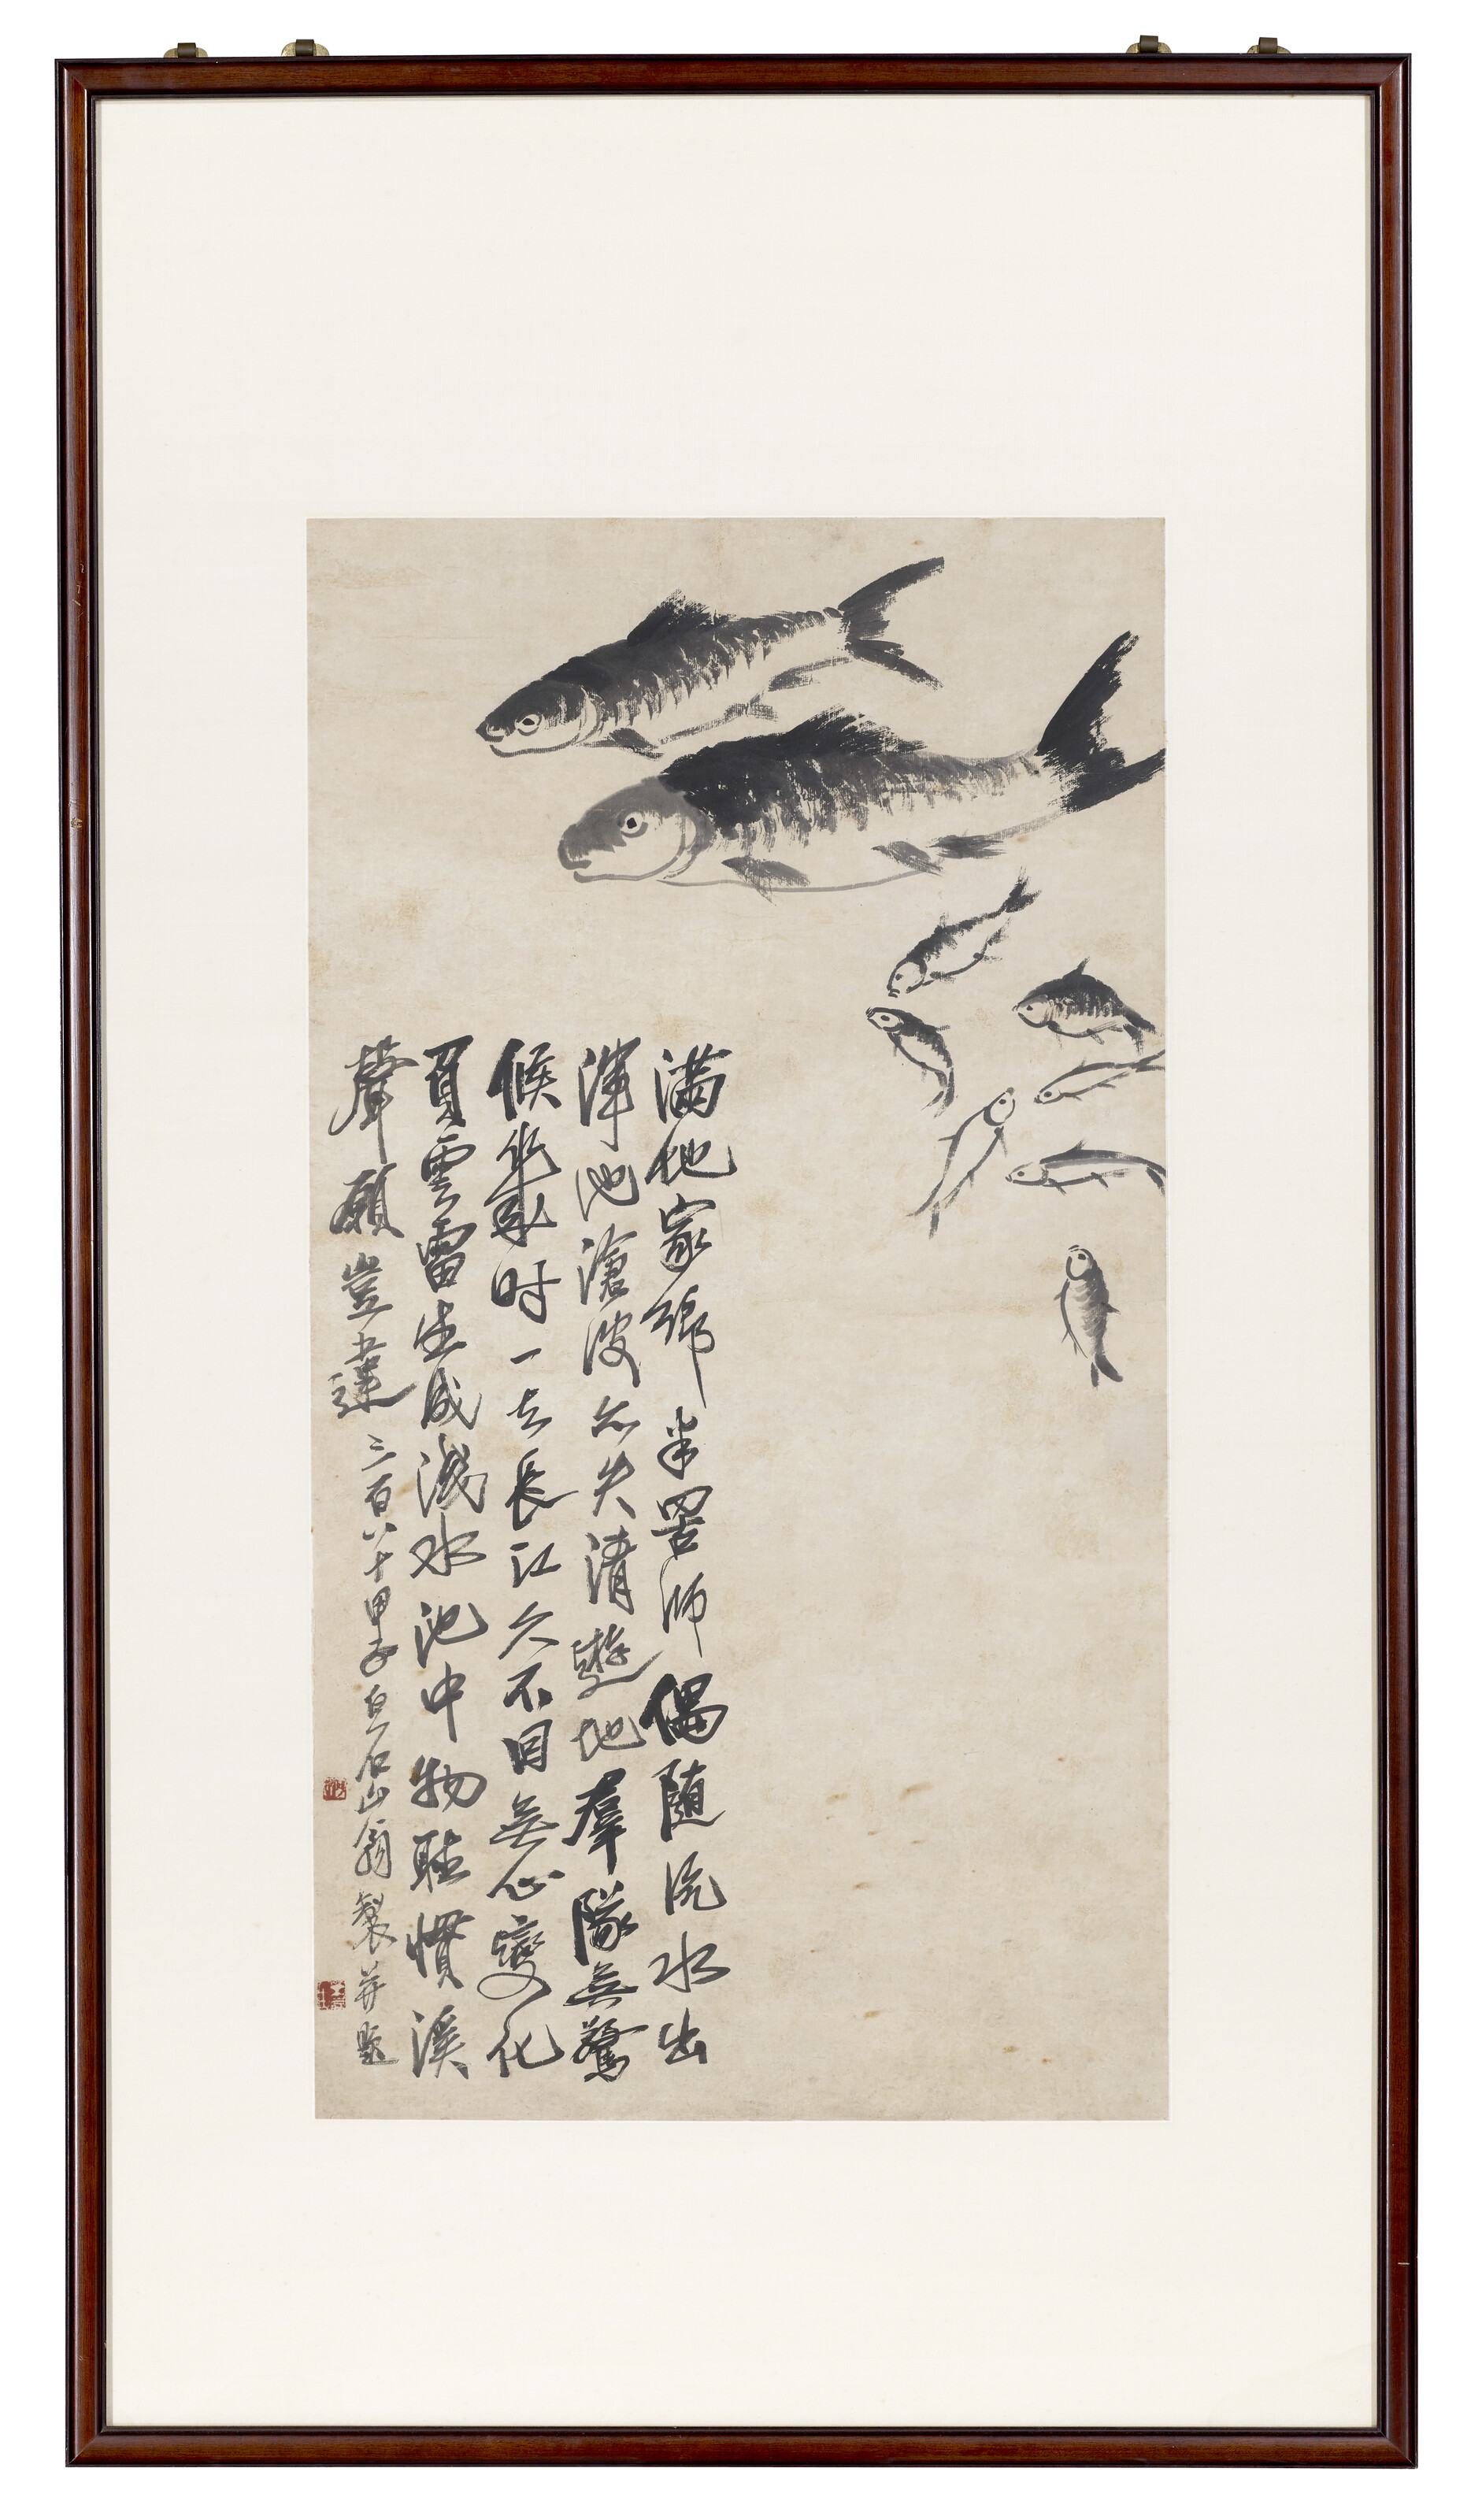 滿地家鄉半罟師偶隨水出
渾池滄波亦失清遊地羣隊無驚
候幾時一去長江久不回無心變化
負雲雷生成淺水池中物聽慣溪
聲願豈違三百八十甲子白石山翁製并題